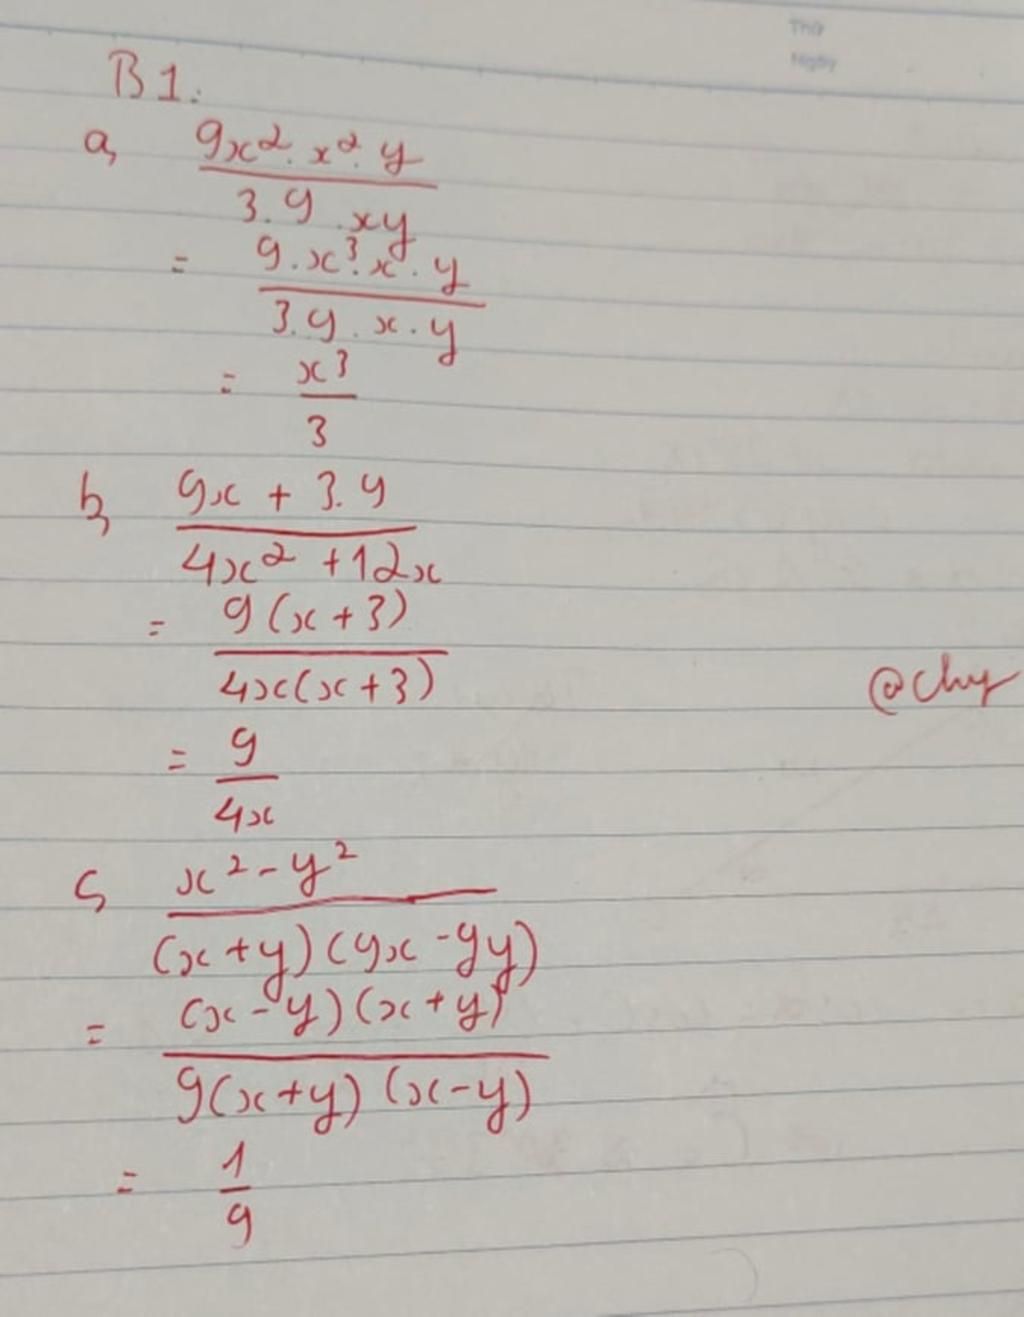 Thứ
Ngày
B1:
a, 9x². x². y / 3.9 .xy
= 9.x³.x.y / 3.9.x.y
= x³ / 3
b, 9x + 3.9 / 4x² + 12x
= 9(x+3) / 4x(x+3)
@chy
= 9 / 4x
c, x² - y² / (x+y)(9x-9y)
= (x-y)(x+y) / 9(x+y)(x-y)
= 1 / 9